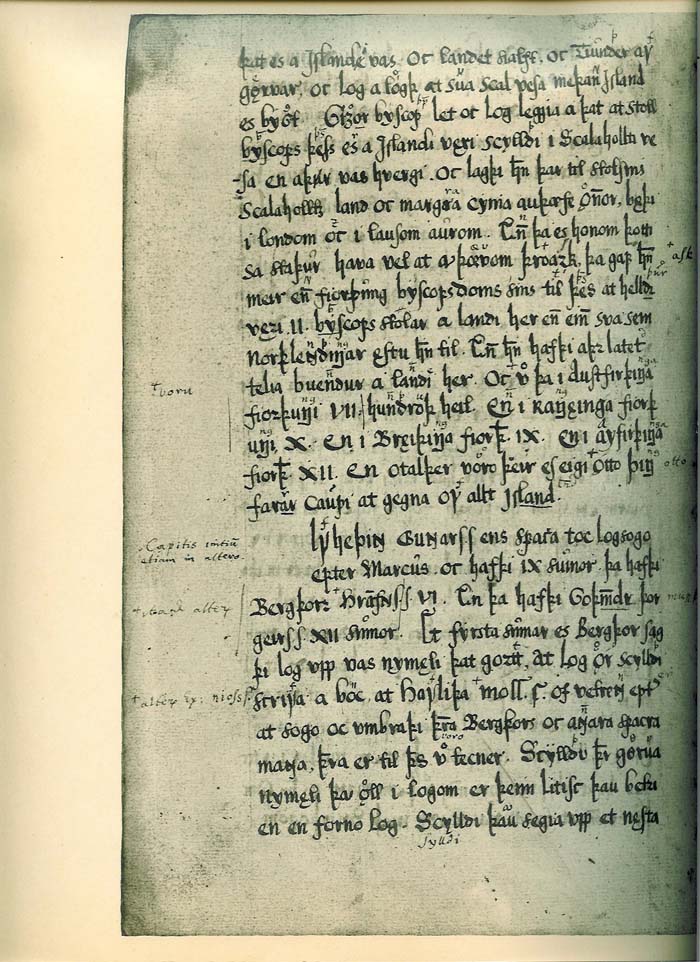 þat es a Islande vas. oc landet sialft. oc Tiunder aꝩ
gørvar. oc log a løgþ at sua scal vesa meþan Island
es bygt. Gizor byscop let oc log leggia a þat at stoll
byscops þess es a Islandi veri scylldi i Scalaholti ve
sa en aþur vas hvergi. oc lagþi hn þar til stolsens
Scalaholltz land oc margra cynia auþæfe ønnor, bæþi
i londom oc i lausom aurom. En þa es honom þotti
sa staþur hava vel at auþøvom þroazk, þa gaf hn
meir en fiorþung byscopsdoms sins til þes at helldr
veri .II. byscops stolar a landi her en ein sva sem
norþlendingar estu hn til. En hn hafþi aþr latet
telia buendur a landi her. Oc v þa i Austfirþinga
fiorþungi VII. hundroþ heil. En i Rangęinga fiorþ
ungi. X. En i Bręiþfirþinga fiorþ. IX. En i ayfirþinga
fiorþ. XII. En otalþer voro þeir es eigi otto þing
farar caupi at gegna of allt Island.
Ulfheþin Gunnarss ens spaka toc logsogo
epter Marcus. oc hafþi IX sumor. þa hafþi
Bergþorr Hrafnss VI. En þa hafþi Goþmdr þor
geirss XII sumor. Et fyrsta sumar es Bergþor sag
þi log upp vas nymęli þat gort, at log or scylldi
scriva a boc at Hafliþa moss. s. of vetren eptr
at sogo oc umbraþi þra Bergþors oc annara spacra
manna, þra er til þess v tecner. Scylldu þr gørva
nymęli þau øll i logom er þeim litisc þau betri
en en forno log. Scylldi þau segia upp et nęsta
sylldi
+ voru
Capitis initiu
etiam in altero.
+ ask
otto